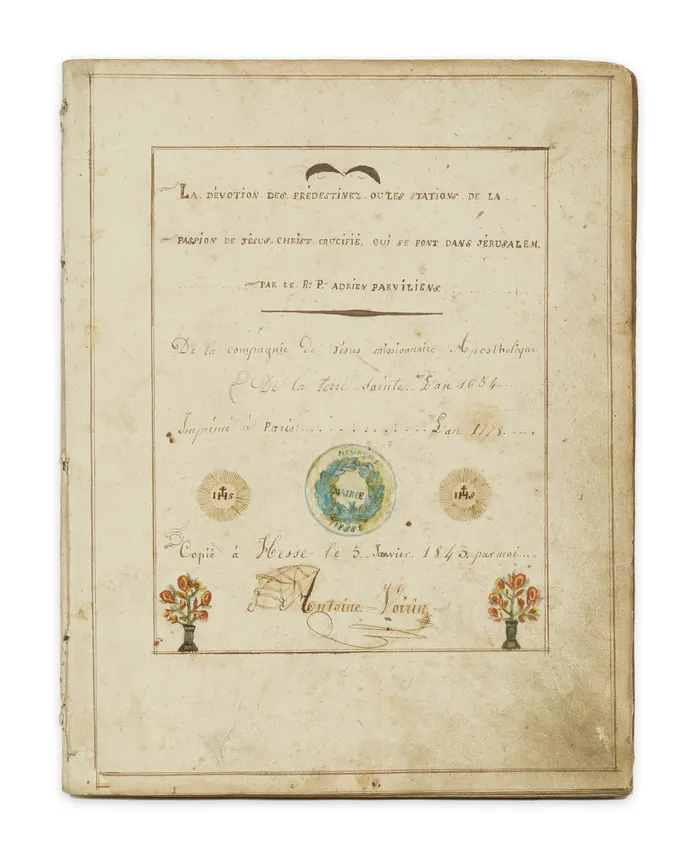 LA DÉVOTION DES PRÉDESTINEZ OU LES STATIONS DE LA
PASSION DE JÉSUS-CHRIST CRUCIFIÉ, QUI SE FONT DANS JÉRUSALEM,
PAR LE R. P. ADRIEN PARVILIENS.
De la compagnie de Jésus missionnaire Apostholique
De la terre sainte L'an 1654
Imprimé à Paris L'an 1778
IHS
MAIRIE
HESSE
IHS
Copié à Hesse le 5 Janvier 1843 par moi
Antoine Voirin